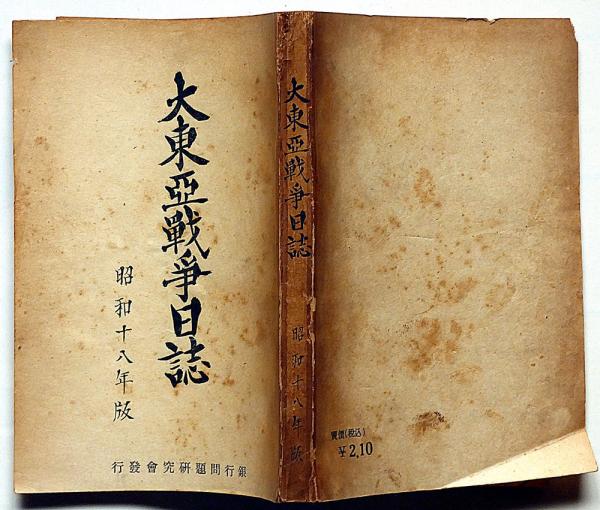 大東亞戰爭日誌
昭和十八年版
銀行問題研究會發行
大東亞戰爭日誌
昭和十八年版
賣價(税込)
¥2.10